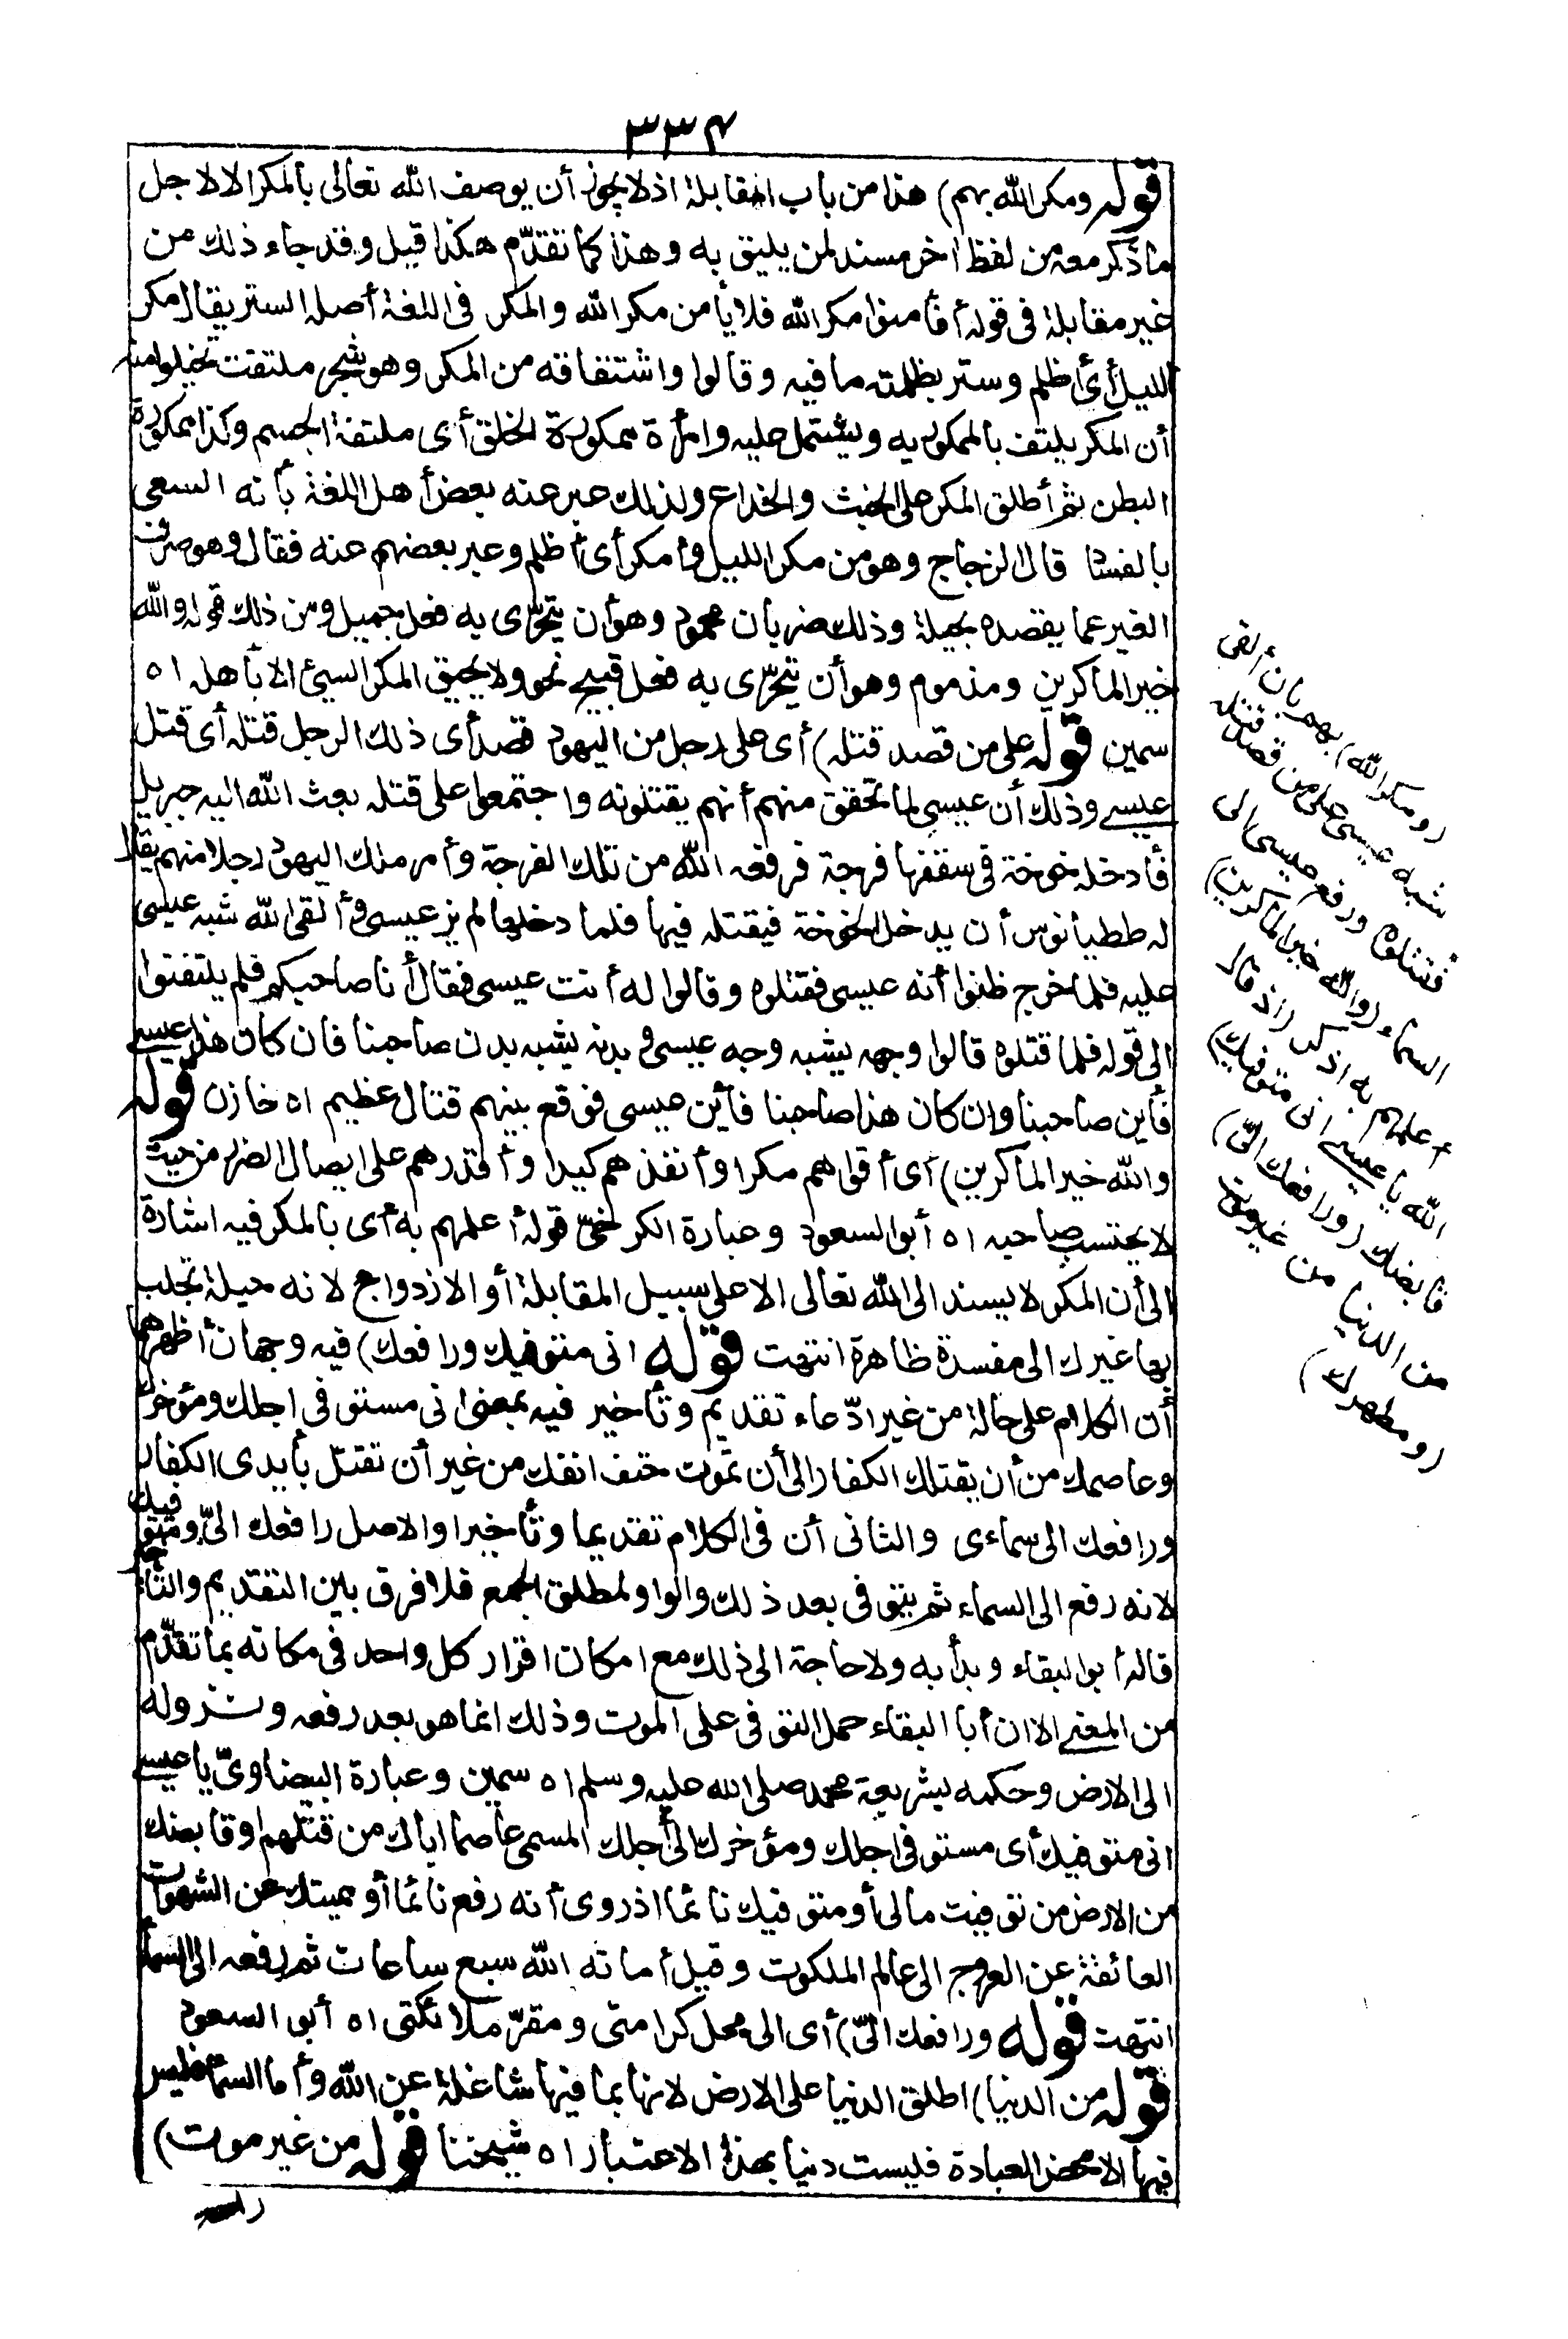 ٣٣٤
قوله ومكر الله بهم) هذا من باب المقابلة اذ لا يجوز أن يوصف الله تعالى بالمكر الا لاجل
ما ذكر معه من لفظ اخر مسند لمن يليق به وهذا كما تقدّم هكذا قيل وقد جاء ذلك من
غير مقابلة فى قوله أفأمنوا مكر الله فلا يأمن مكر الله والمكر فى اللغة أصله الستر يقال مكر
الليل أى أظلم وستر بظلمته ما فيه وقالوا واشتقاقه من المكر وهو شجر ملتف تخيلوا منه
أن المكر يلتف بالممكور به ويشتمل عليه وامرأة ممكورة الخلق أى ملتفة الجسم وكذا ممكورة
البطن ثم أطلق المكر على الخبث والخداع ولذلك عبر عنه بعض أهل اللغة بأنه السعى
بالفساد قال الزجاج وهو من مكر الليل وأمكر أى أظلم وعبر بعضهم عنه فقال وهو صرف
الغير عما يقصده بحيلة وذلك ضربان محمود وهو أن يتحرّى به فعل جميل ومن ذلك قوله والله
خير الماكرين ومذموم وهو أن يتحرّى به فعل قبيح نحو ولا يحيق المكر السيئ الا بأهله اه
سمين قوله على من قصد قتله) أى على رجل من اليهود قصد أى ذلك الرجل قتله أى قتل
عيسى وذلك أن عيسى لما تحقق منهم أنهم يقتلونه واجتمعوا على قتله بعث الله اليه جبريل
فأدخله خوخة فى سقفها فرجة فرفعه الله من تلك الفرجة وأمر ملك اليهود رجلا منهم يقال
له ططيانوس أن يدخل الخوخة فيقتله فيها فلما دخلها لم ير عيسى وألقى الله شبه عيسى
عليه فلما خرج ظنوا أنه عيسى فقتلوه وقالوا له أنت عيسى فقال أنا صاحبكم فلم يلتفتوا
الى قوله فلما قتلوه قالوا وجهه يشبه وجه عيسى وبدنه يشبه بدن صاحبنا فان كان هذا عيسى
فأين صاحبنا وان كان هذا صاحبنا فأين عيسى فوقع بينهم قتال عظيم اه خازن قوله
والله خير الماكرين) أى أقواهم مكرا وأنفذهم كيدا وأقدرهم على ايصال الضرر من حيث
لا يحتسب صاحبه اه أبو السعود وعبارة الكرخىّ قوله أعلمهم به أى بالمكر فيه اشارة
الى أن المكر لا يسند الى الله تعالى الا على سبيل المقابلة أو الازدواج لانه حيلة تجلب
بها غيرك الى مفسدة ظاهرة انتهت قوله انى متوفيك ورافعك) فيه وجهان أظهرهما
أن الكلام على حاله من غير ادّعاء تقديم وتأخير فيه بمعنى انى مستوفى اجلك ومؤخرك
وعاصمك من أن يقتلك الكفار الى أن تموت حتف انفك من غير أن تقتل بأيدى الكفار
ورافعك الى سماءى والثانى أن فى الكلام تقديما وتأخيرا والاصل رافعك الىّ ومتوفيك
لانه رفع الى السماء ثم يتوفى بعد ذلك والواو لمطلق الجمع فلا فرق بين التقديم والتأخير
قاله أبو البقاء وبدأ به ولا حاجة الى ذلك مع امكان اقرار كل واحد فى مكانه بما تقدّم
من المعنى الا ان أبا البقاء حمل التوفى على الموت وذلك انما هو بعد رفعه ونزوله
الى الارض وحكمه بشريعة محمد صلى الله عليه وسلم اه سمين وعبارة البيضاوىّ يا عيسى
انى متوفيك أى مستوفى اجلك ومؤخرك الى أجلك المسمى عاصما اياك من قتلهم او قابضك
من الارض من توفيت مالى أو متوفيك نائما اذ روى أنه رفع نائما أو مميتك عن الشهوات
العائقة عن العروج الى عالم الملكوت وقيل أماته الله سبع ساعات ثم رفعه الى السماء
انتهت قوله ورافعك الىّ) أى الى محل كرامتى ومقرّ ملائكتى اه أبو السعود
قوله من الدنيا) اطلق الدنيا على الارض لانها بما فيها شاغلة عن الله وأما السماء فليس
فيها الا محض العبادة فليست دنيا بهذا الاعتبار اه شيخنا قوله من غير موت)
(ومكر الله) بهم بان ألقى
شبه عيسى على من قصد قتله
فقتلوه ورفع عيسى الى
السماء (والله خير الماكرين)
أعلمهم به اذكر (اذ قال
الله يا عيسى انى متوفيك)
قابضك (ورافعك الىّ)
من الدنيا من غير موت
(ومطهرك)